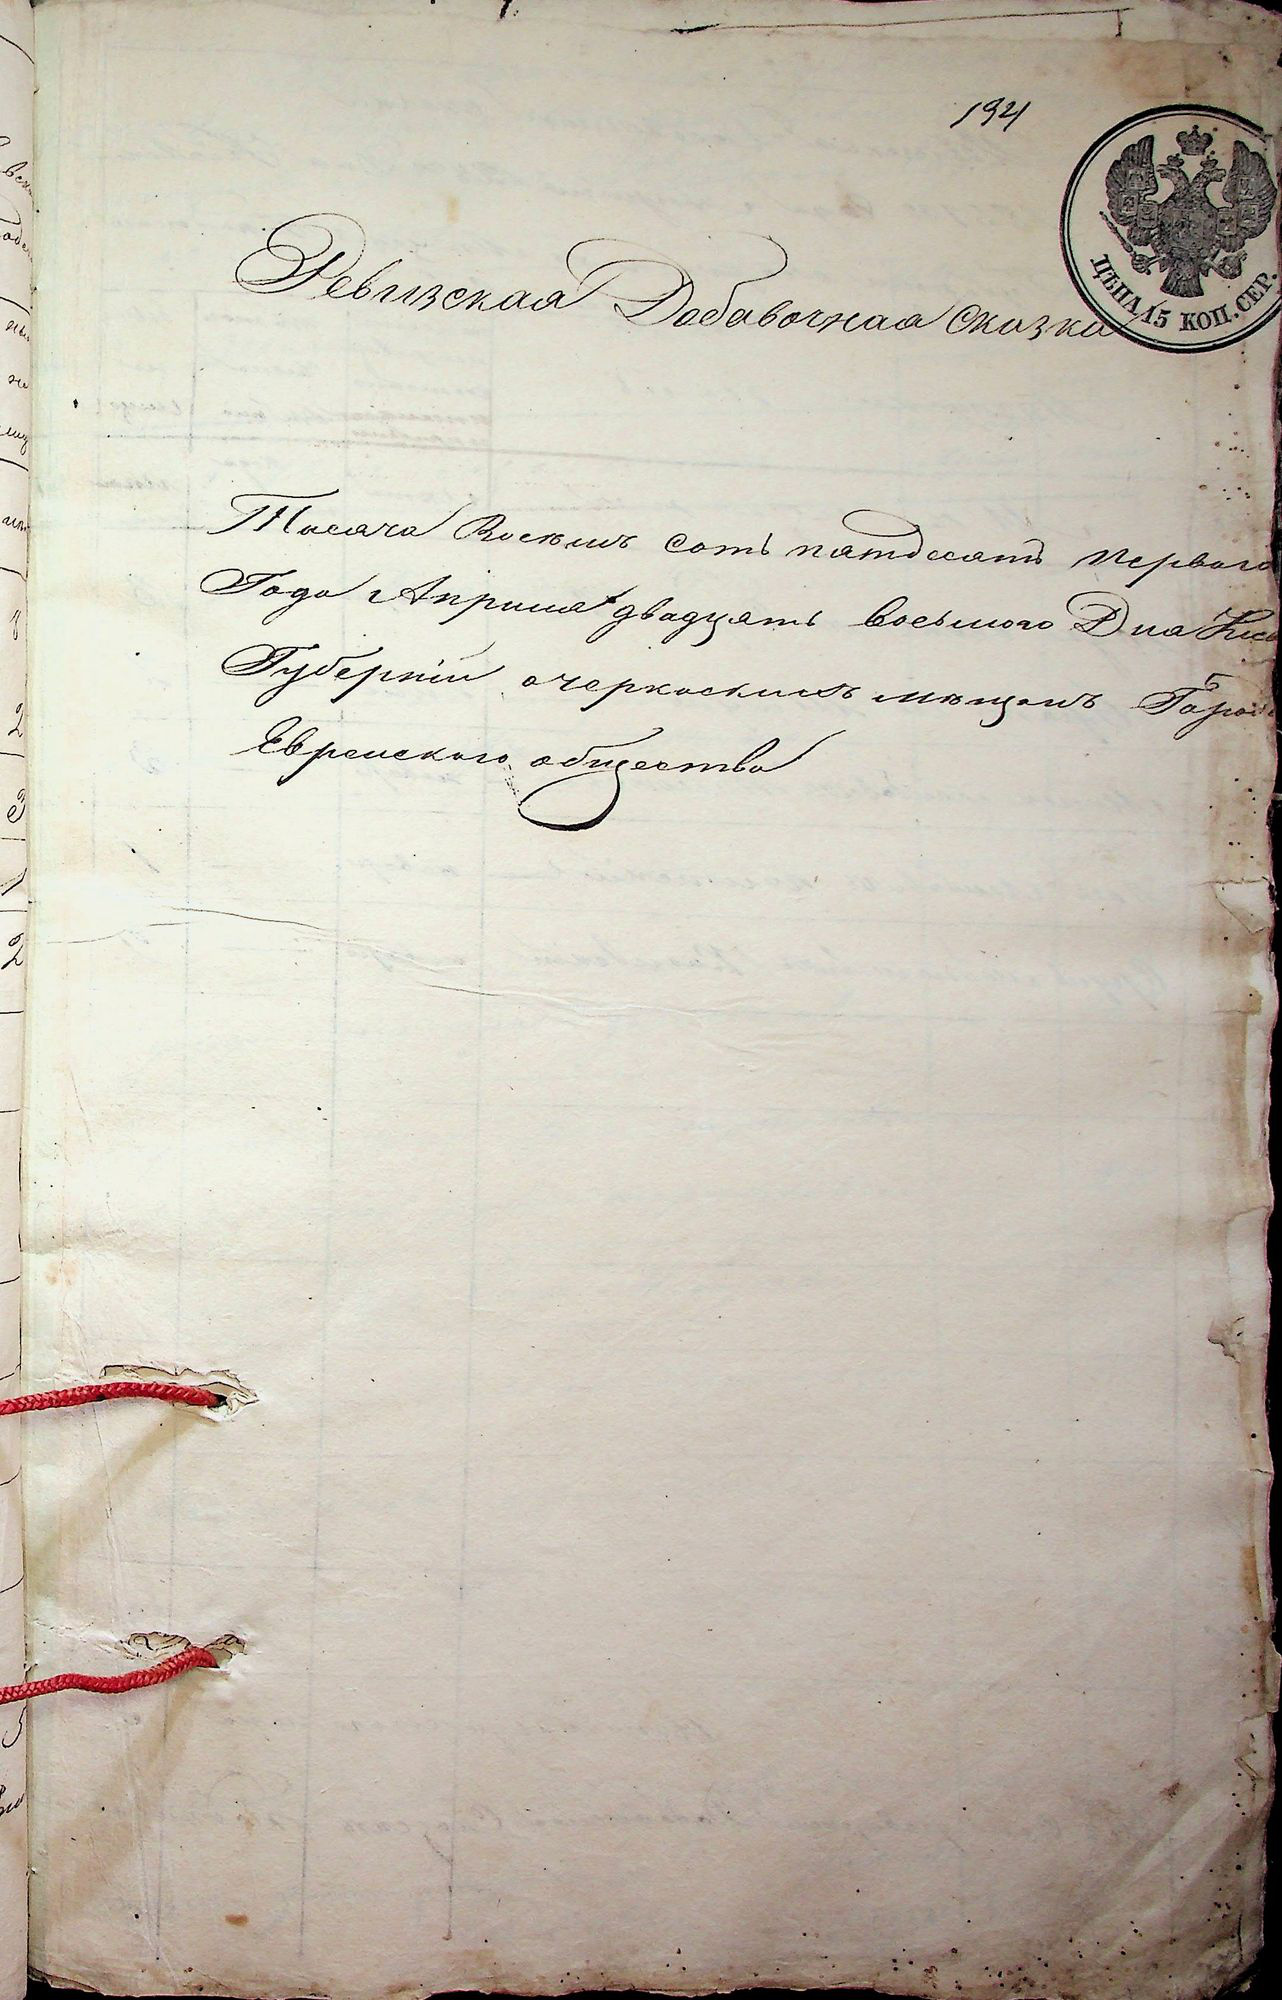 194
ЦѢНА 15 КОП. СЕР.
Ревизская Добавочная сказка
Тисяча Восемъ сотъ пятдесятъ первого
Года Апреля двадцять восьмого Дня
Губерніи о черкаскихъ мѣщанъ
Евреиского общества